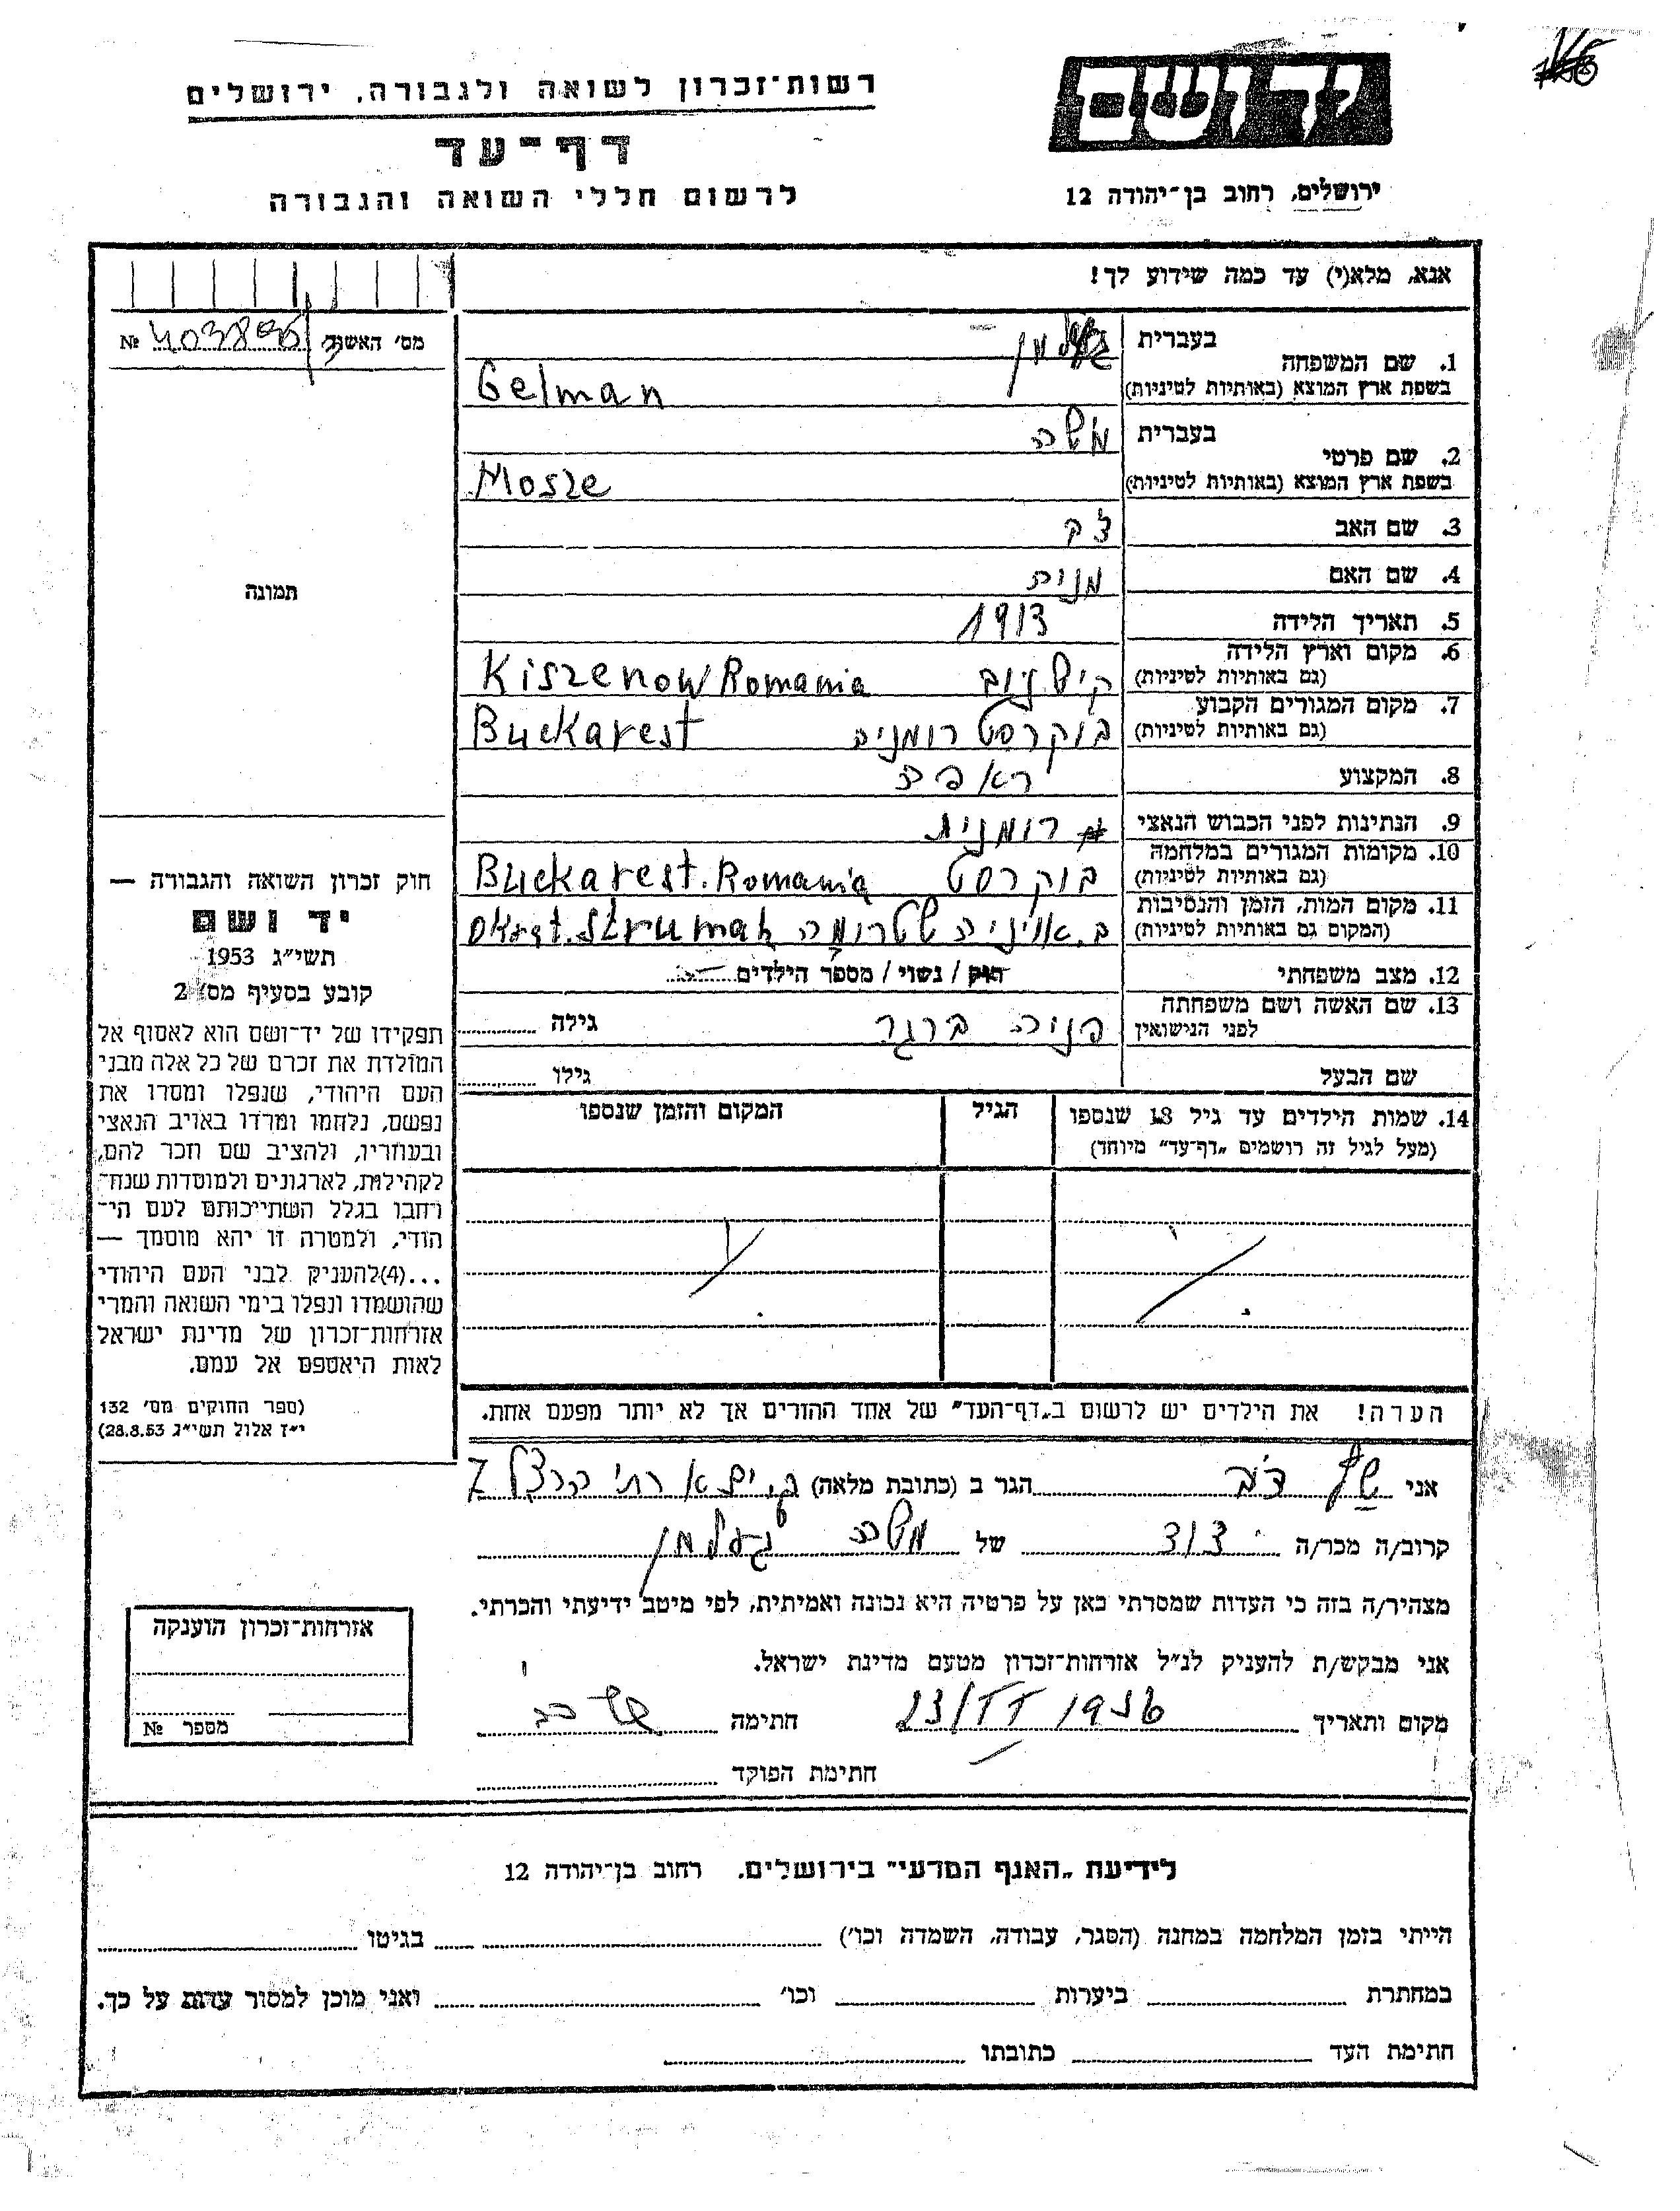 רשות־זכרון לשואה ולגבורה, ירושלים
דף־עד
לרשום חללי השואה והגבורה
יד ושם
ירושלים, רחוב בן־יהודה 12
אנא, מלא(י) עד כמה שידוע לך!
מס׳ האשה №
1. שם המשפחה בעברית געלמן
בשפת ארץ המוצא (באותיות לטיניות) Gelman
2. שם פרטי בעברית משה
בשפת ארץ המוצא (באותיות לטיניות) Mosze
3. שם האב
4. שם האם
5. תאריך הלידה 1913
6. מקום וארץ הלידה (גם באותיות לטיניות) קישינוב Kiszenow Romania
7. מקום המגורים הקבוע (גם באותיות לטיניות) בוקרסט רומניה Buckarest
8. המקצוע
9. הנתינות לפני הכבוש הנאצי רומנית
10. מקומות המגורים במלחמה (גם באותיות לטיניות) בוקרסט Buckarest. Romania
11. מקום המות, הזמן והנסיבות (המקום גם באותיות לטיניות) ב. אוניה שטרומה Okret. Strumah
12. מצב משפחתי רוק / נשוי / מספר הילדים
13. שם האשה ושם משפחתה לפני הנישואין פניה ברגר גילה
שם הבעל גילו
14. שמות הילדים עד גיל 18 שנספו
(מעל לגיל זה רושמים „דף־עד״ מיוחד)
הגיל
המקום והזמן שנספו
הערה! את הילדים יש לרשום ב„דף־העד״ של אחד ההורים אך לא יותר מפעם אחת.
תמונה
חוק זכרון השואה והגבורה —
יד ושם
תשי״ג 1953
קובע בסעיף מס׳ 2
תפקידו של יד־ושם הוא לאסוף אל
המולדת את זכרם של כל אלה מבני
העם היהודי, שנפלו ומסרו את
נפשם, נלחמו ומרדו באויב הנאצי
ובעוזריו, ולהציב שם וזכר להם,
לקהילות, לארגונים ולמוסדות שנח־
רבו בגלל השתייכותם לעם הי־
הודי, ולמטרה זו יהא מוסמך —
...(4)להעניק לבני העם היהודי
שהושמדו ונפלו בימי השואה והמרי
אזרחות־זכרון של מדינת ישראל
לאות היאספם אל עמם.
(ספר החוקים מס׳ 132
י״ז אלול תשי״ג 28.8.53)
אני הגר ב (כתובת מלאה) הרצל 7
קרוב/ה מכר/ה של משה געלמן
מצהיר/ה בזה כי העדות שמסרתי כאן על פרטיה היא נכונה ואמיתית, לפי מיטב ידיעתי והכרתי.
אני מבקש/ת להעניק לנ״ל אזרחות־זכרון מטעם מדינת ישראל.
מקום ותאריך 23/II 1956 חתימה
חתימת הפוקד
אזרחות־זכרון הוענקה
מספר №
לידיעת „האגף המדעי״ בירושלים. רחוב בן־יהודה 12
הייתי בזמן המלחמה במחנה (הסגר, עבודה, השמדה וכו׳) בגיטו
במחתרת ביערות וכו׳ ואני מוכן למסור עדות על כך.
חתימת העד כתובתו